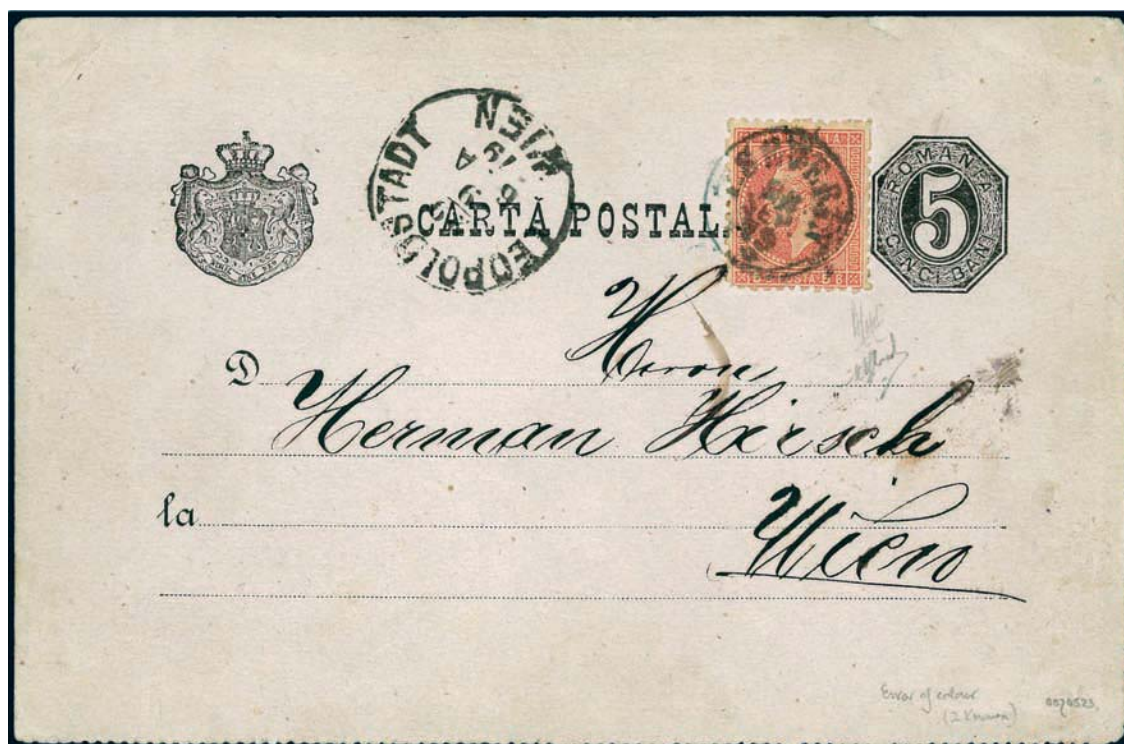 LEOPOLDSTADT
WIEN
CARTĂ POSTAL
ROMANIA
5
CINCI BANI
Herrn
D
Herman Hirsch
la
Wien
Error of colour
(2 Known)